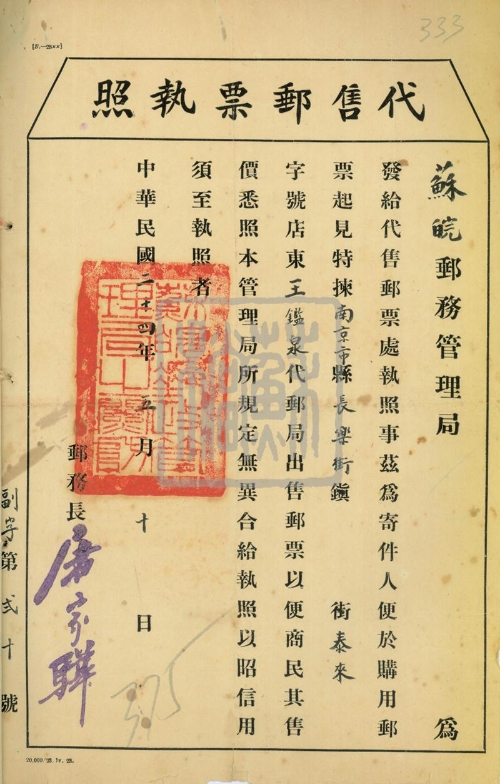 [E.—28xx]
333
代售郵票執照
蘇皖郵務管理局 為
發給代售郵票處執照事茲為寄件人便於購用郵
票起見特揀南京市縣長樂街鎮 街泰來
字號店東王鑑泉代郵局出售郵票以便商民其售
價悉照本管理局所規定無異合給執照以昭信用
須至執照者
中華民國二十四年 五月 十 日
郵務長
副字第弍十號
375